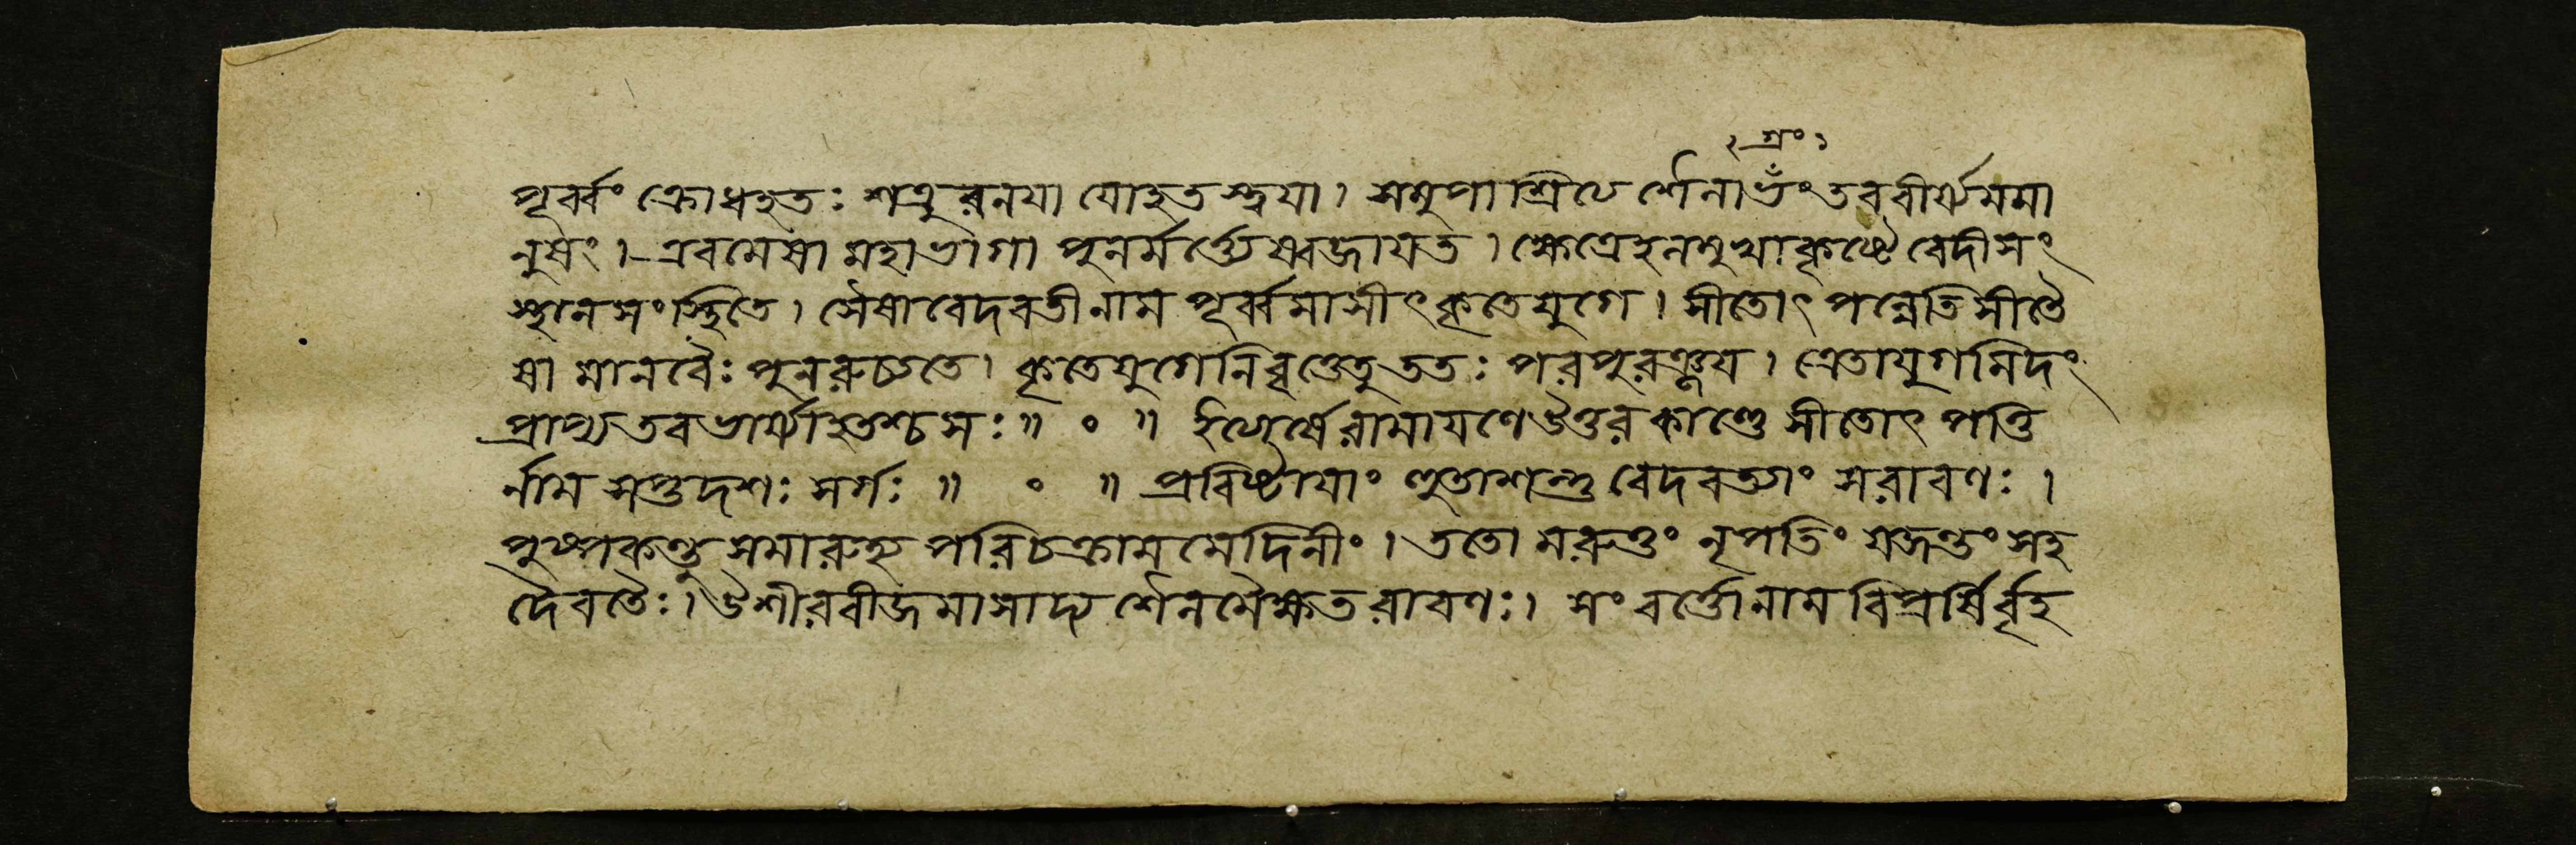 গ্রং
পূর্ব্বং ক্রোধহতঃ শত্রুরনযা যোহতস্ত্বযা। সমুপাশ্রিত্যে শৈনাভঁংতববীর্য্যমমা
নুষং।এবমেষা মহাভাগা পুনর্মর্ত্ত্যেষ্বজাযত। ক্ষেত্রেহনমুখাকৃষ্টে বেদীসং
স্থানসংস্থিতে। সৈষাবেদবতীনাম পূর্ব্বমাসীৎকৃতেযুগে। সীতোৎপন্নেতিসীতৈ
ষা মানবৈঃ পুনরুচ্যতে। কৃতেযুগেনিবৃত্তেতু ততঃ পরপুরঞ্জয। ত্রেতাযুগমিদং
প্রাপ্য তবভার্য্যাহৃতশ্চসঃ॥ ০ ॥ ইত্যার্ষেরামাযণেঔত্তরকাণ্ডে সীতোৎপত্তি
র্নাম সপ্তদশঃ সর্গঃ॥ ০ ॥ প্রবিষ্টাযাং হুতাশন্তু বেদবত্যাং সরাবণঃ।
পুষ্পকন্তু সমারুহ্য পরিচক্রাম মেদিনীং। ততো মরুত্তং নৃপতিং যজন্তং সহ
দৈবতৈঃ। ঔশীরবীজমাসাদ্য শৈনমৈক্ষত রাবণঃ। সংবর্ত্তোনাম বিপ্রর্ষির্বৃহ